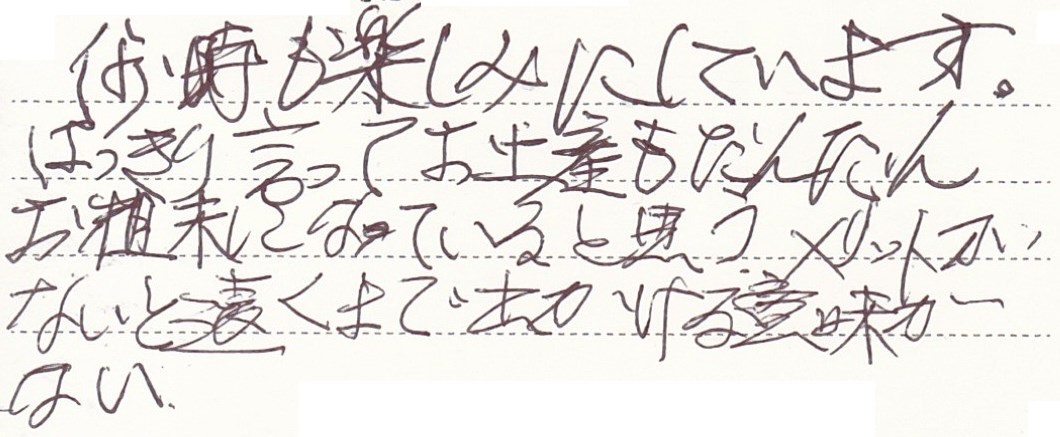 何時も楽しみにしています。
はっきり言ってお土産もだんだん
お粗末になっていると思う メリットが
ないと遠くまで出かける意味が
ない